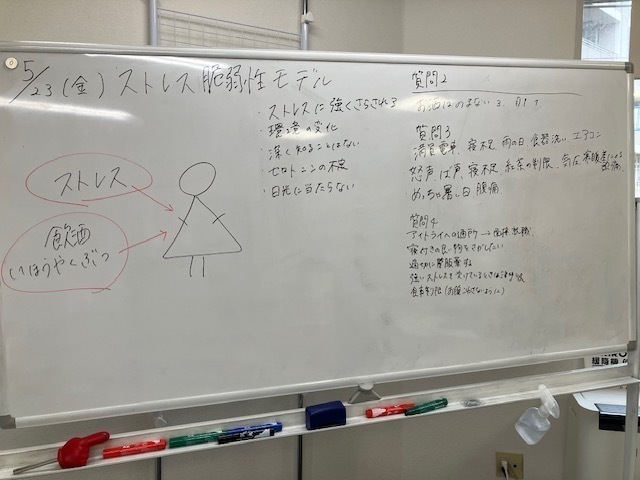 5/23(金) ストレス脆弱性モデル
・ストレスに強くさらされる
・環境の変化
・深く知ることはない
・セロトニンの不足
・日光に当たらない
ストレス
飲酒
いほうやくぶつ
質問2
お酒はのまない 3、
質問3
満員電車、寝不足、雨の日、食器洗い、エアコン
怒声、ば声、寝不足、紅茶の制限、気圧、寒暖差による頭痛、
めっちゃ暑い日、腹痛
質問4
アイトライへの通所 →
寝付きの良い物をさがしたい
適切に服薬する
強いストレスを受けているときは
食事制限(お腹こわさないように)